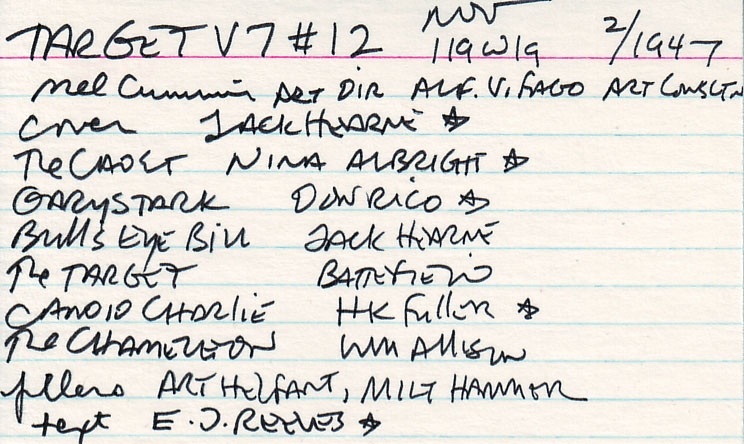 TARGET V7 #12 NOV 119W19 2/1947
Mel Cummin ART DIR ALF. V. FAGO ART CONSLTN
Cover JACK HEARNE ☆
The CADET NINA ALBRIGHT ☆
GARY STARK DON RICO ☆
Bulls Eye Bill JACK HEARNE
The TARGET BATEFIELD
CANDID CHARLIE HK Fuller ☆
The CHAMELEON Wm Allison
fillers ART HELFANT, MILT HAMMER
text E. J. REEVES ☆